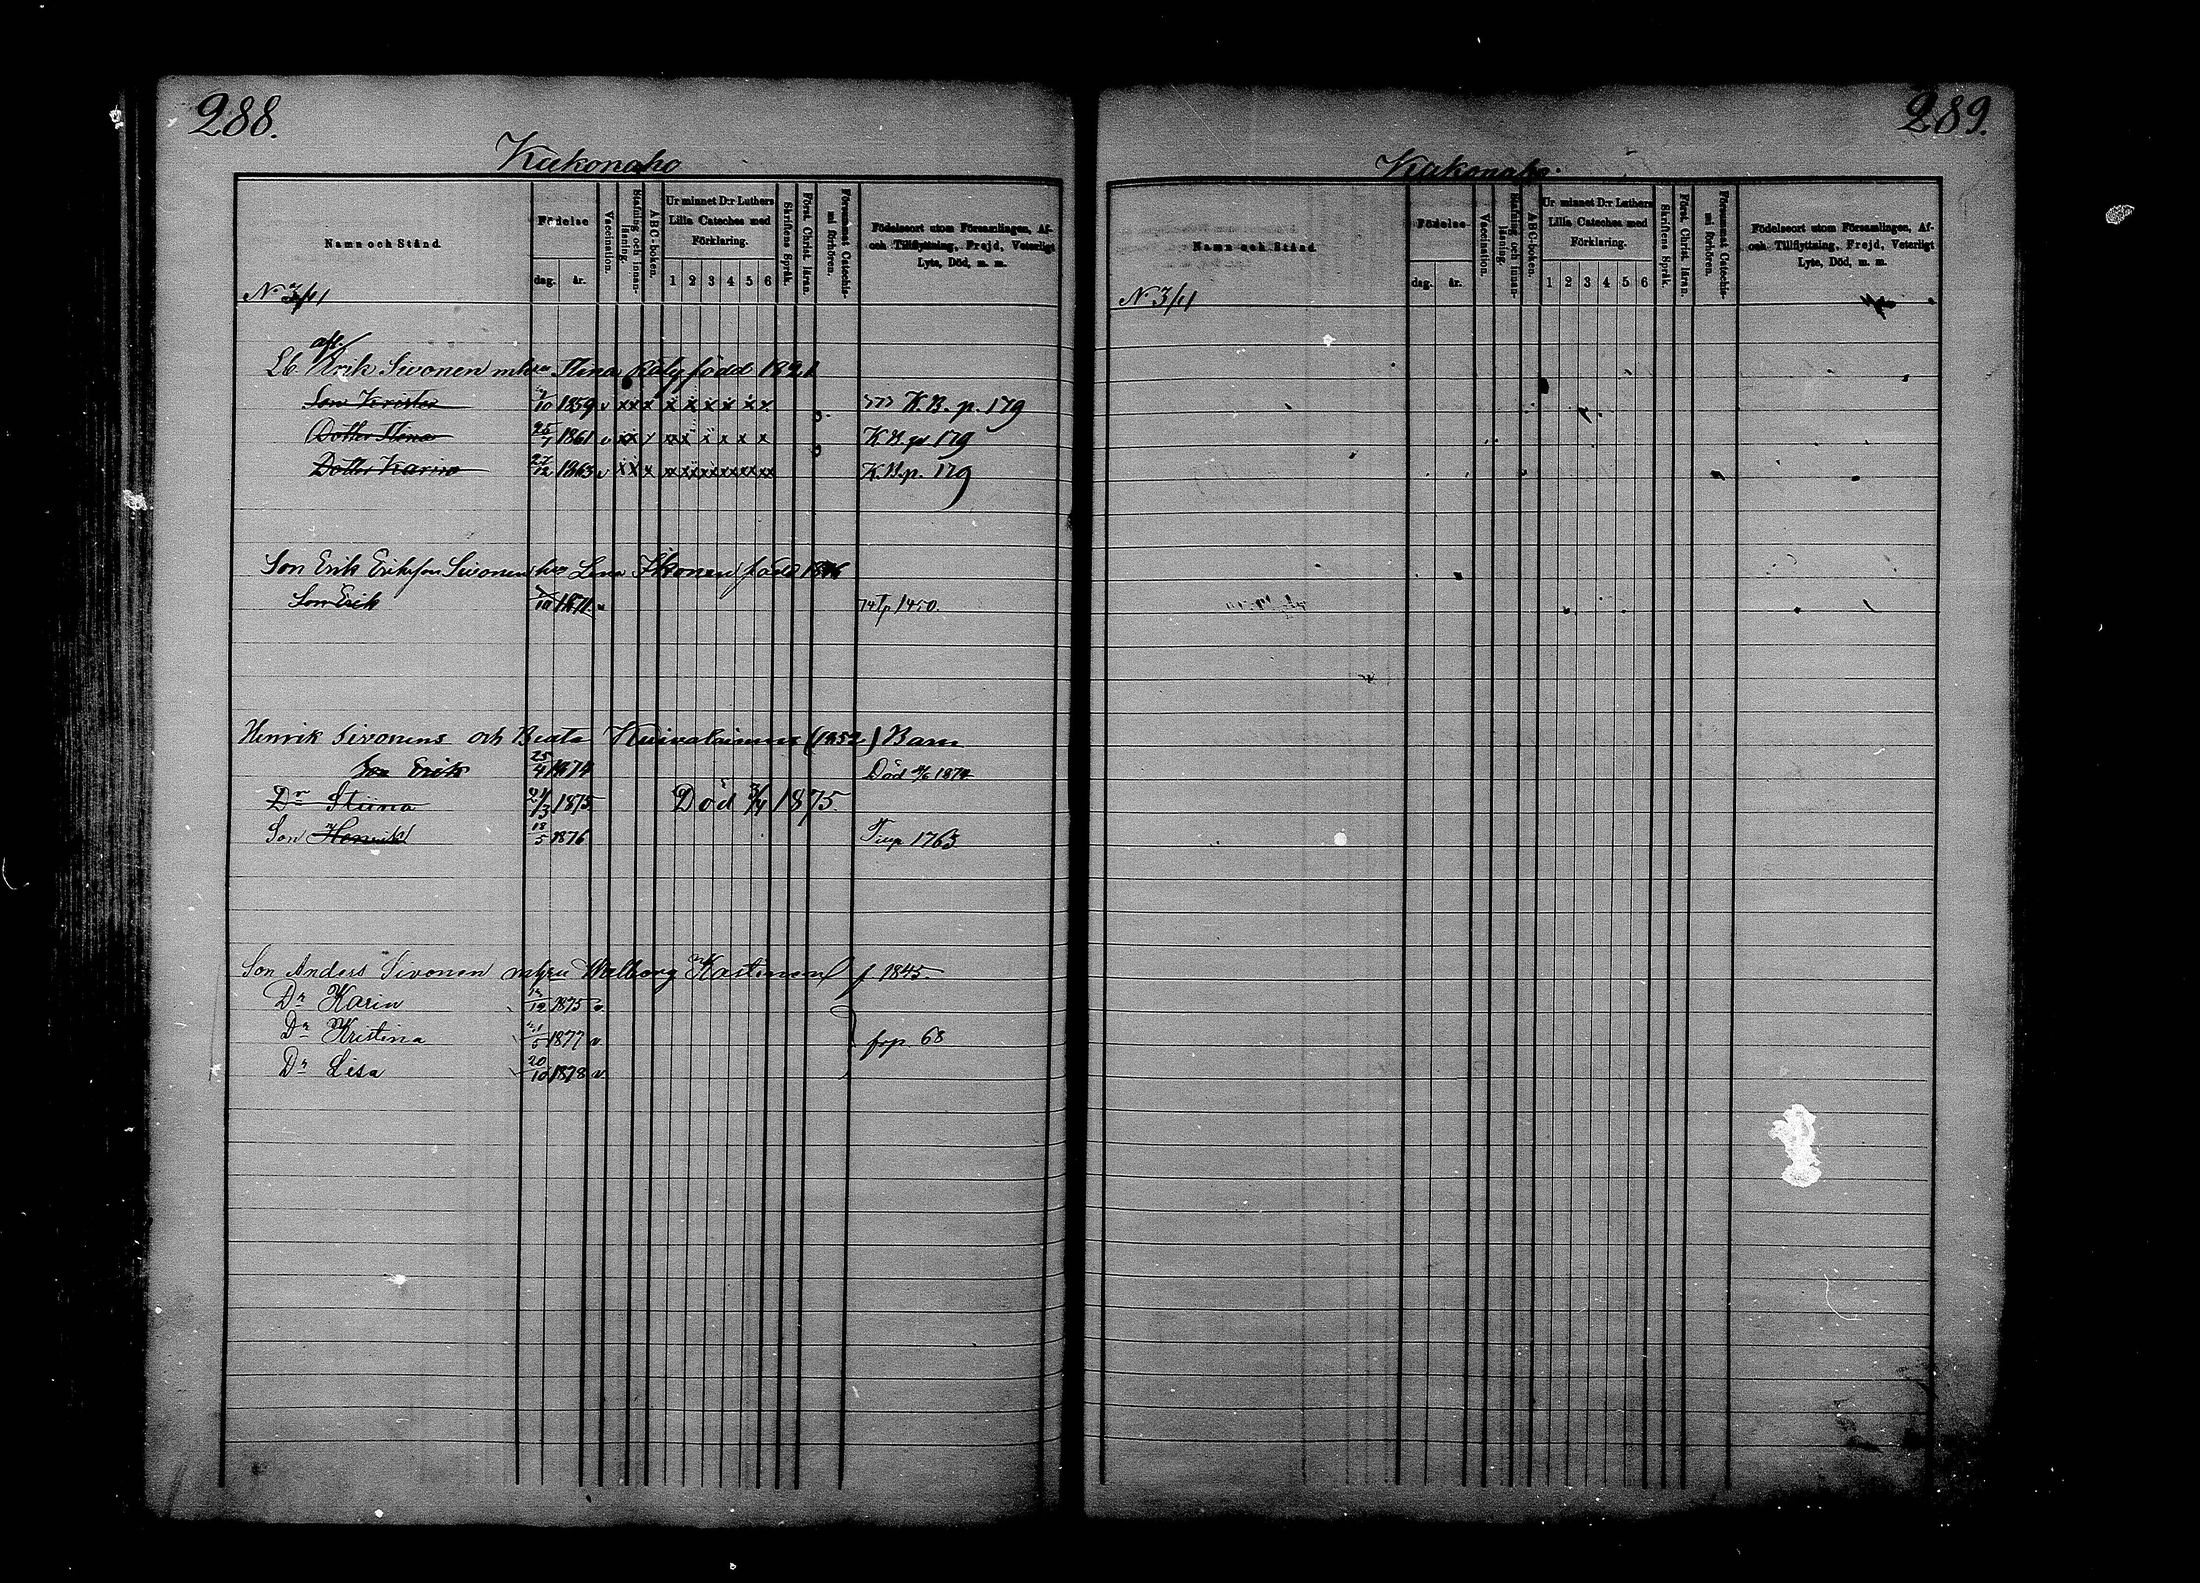 288.
Kiekonaho
Namn och Stånd.
Födelse
dag. år.
Vaccination.
Stafning och innan-läsning.
ABC-boken.
Ur minnet D:r Luthers Lilla Cateches med Förklaring.
1 2 3 4 5 6
Skriftens Språk.
Först. Christ. läran.
Försummat Catechismi förhören.
Födelseort utom Församlingen, Af- och Tillflyttning, Frejd, Veterligt Lyte, Död, m. m.
N:o 3/41
Lb. afl. Erik Sivonen Stina född 1821
Son Krister 10 1859 v x x x x x x x x x K.B. p. 179
Dotter Stina 25/1 1861 v x x x x x x x x K.B. p 179
Dotter Karin 27/12 1863 v x x x x x x x x x K.B. p. 179
Son Erik Eriksson Sivonen hu Lena Ikonen född 1846
Son Erik 10 1871 v p 1450.
Henrik Sivonens och Beata Kuivalainens (1852) Barn
Son Erik 25/4 1874 Död 1874
Dr Stiina 21/3 1875 Död 3/4 1875.
Son Henrik 18/5 1876 p 1765
Son Anders Sivonen m hru Walborg Kastinen f 1845
Dr Karin 12 1875 v
Dr Kristina 21/5 1877 v p. 68
Dr Lisa 20/10 1878 v
289.
Kiekonaho.
Namn och Stånd.
Födelse
dag. år.
Vaccination.
Stafning och innan-läsning.
ABC-boken.
Ur minnet D:r Luthers Lilla Cateches med Förklaring.
1 2 3 4 5 6
Skriftens Språk.
Först. Christ. läran.
Försummat Catechismi förhören.
Födelseort utom Församlingen, Af- och Tillflyttning, Frejd, Veterligt Lyte, Död, m. m.
N:o 3/41